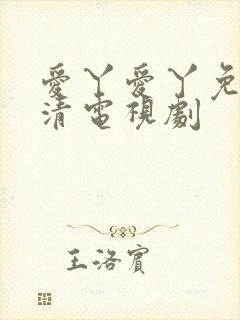 愛丫愛丫免
清電視劇
王洛賓